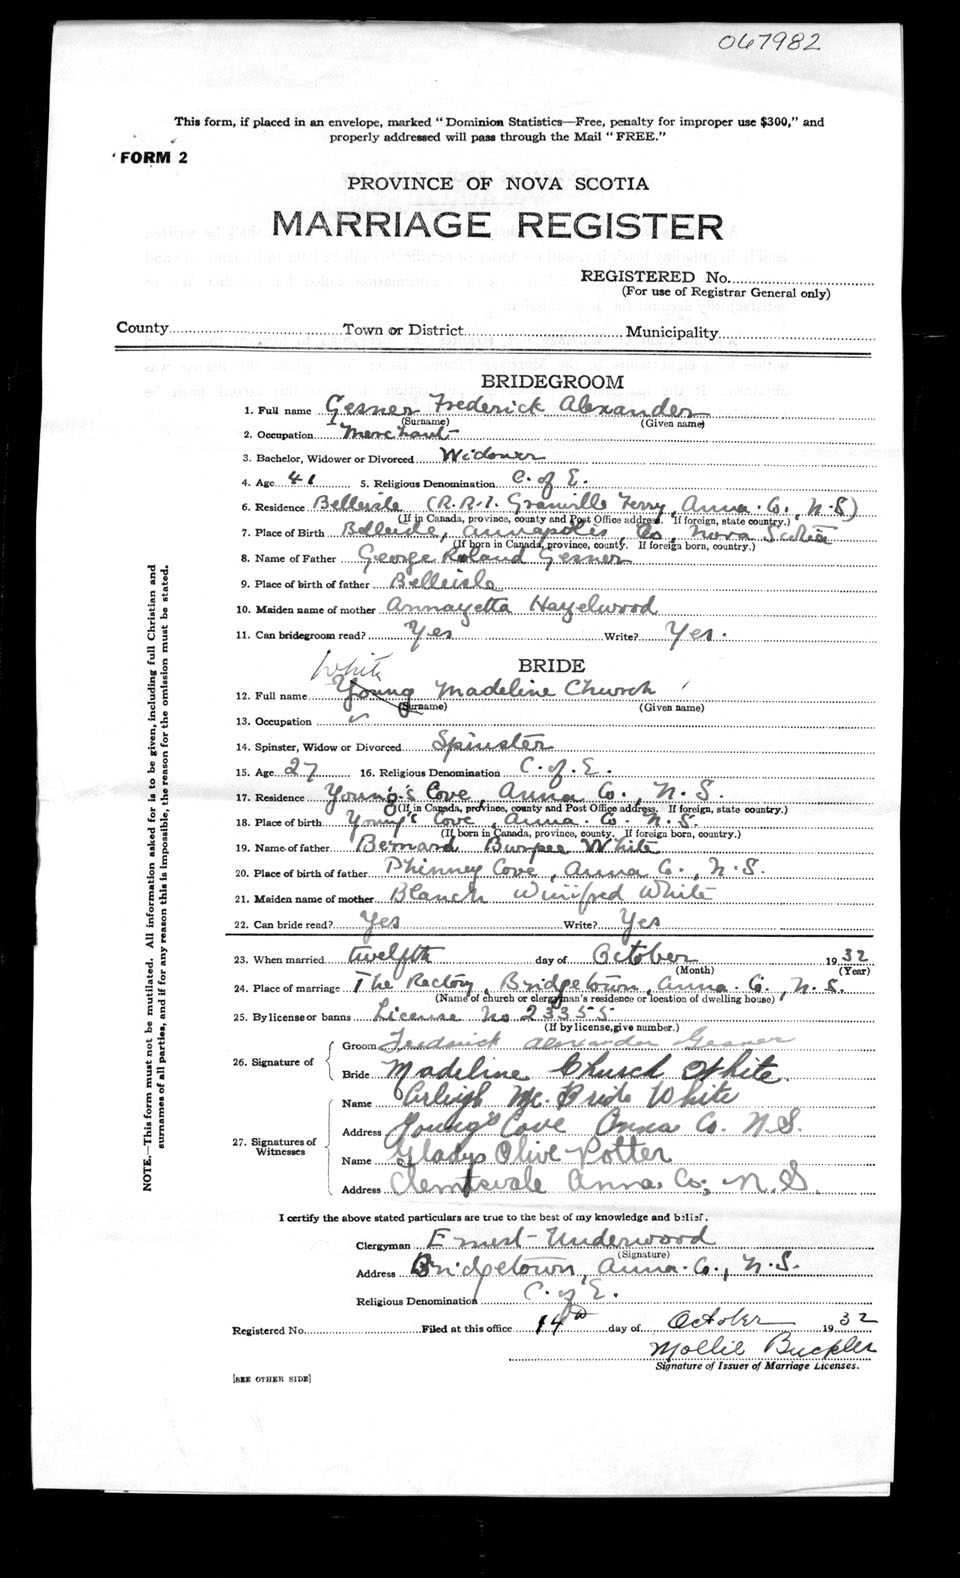 067982
This form, if placed in an envelope, marked "Dominion Statistics—Free, penalty for improper use $300," and
properly addressed will pass through the Mail "FREE."
FORM 2
PROVINCE OF NOVA SCOTIA
MARRIAGE REGISTER
REGISTERED No.
(For use of Registrar General only)
County Town or District Municipality
BRIDEGROOM
1. Full name Gesner Frederick Alexander
(Surname) (Given name)
2. Occupation Merchant
3. Bachelor, Widower or Divorced Widower
4. Age 41 5. Religious Denomination C. of E.
6. Residence Belleisle (R.R.1. Granville Ferry, Anna. Co. N.S)
(If in Canada, province, county and Post Office address. If foreign, state country.)
7. Place of Birth Belleisle, Annapolis Co, Nova Scotia
(If born in Canada, province, county. If foreign born, country.)
8. Name of Father George Roland Gesner
9. Place of birth of father Belleisle
10. Maiden name of mother Annayetta Hazelwood
11. Can bridegroom read? Yes Write? Yes.
BRIDE
White
12. Full name Young Madeline Church
(Surname) (Given name)
13. Occupation
14. Spinster, Widow or Divorced Spinster
15. Age 27 16. Religious Denomination C. of. E.
17. Residence Young's Cove, Anna Co., N.S.
(If in Canada, province, county and Post Office address. If foreign, state country.)
18. Place of birth Young's Cove, Anna. Co. N.S.
(If born in Canada, province, county. If foreign born, country.)
19. Name of father Bernard Burpee White
20. Place of birth of father Phinney Cove, Anna Co., N.S.
21. Maiden name of mother Blanch Winifred White
22. Can bride read? Yes Write? Yes
23. When married twelfth day of October 1932
(Month) (Year)
24. Place of marriage The Rectory, Bridgetown, Anna. Co., N.S.
(Name of church or clergyman's residence or location of dwelling house)
25. By license or banns License No 23355
(If by license, give number.)
Groom Frederick Alexander Gesner
26. Signature of
Bride Madeline Church White.
Name Arleigh Mc. Bride White
Address Young's Cove Anna Co. N.S.
27. Signatures of Witnesses
Name Gladys Olive Potter
Address Clemtsvale Anna. Co; N.S.
I certify the above stated particulars are true to the best of my knowledge and belief.
Clergyman Ernest Underwood
(Signature)
Address Bridgetown, Anna. Co., N.S.
Religious Denomination C. of E.
Registered No. Filed at this office 14th day of October 1932
Mollie Buckler
Signature of Issuer of Marriage Licenses.
[SEE OTHER SIDE]
NOTE.—This form must not be mutilated. All information asked for is to be given, including full Christian and
surnames of all parties, and if for any reason this is impossible, the reason for the omission must be stated.